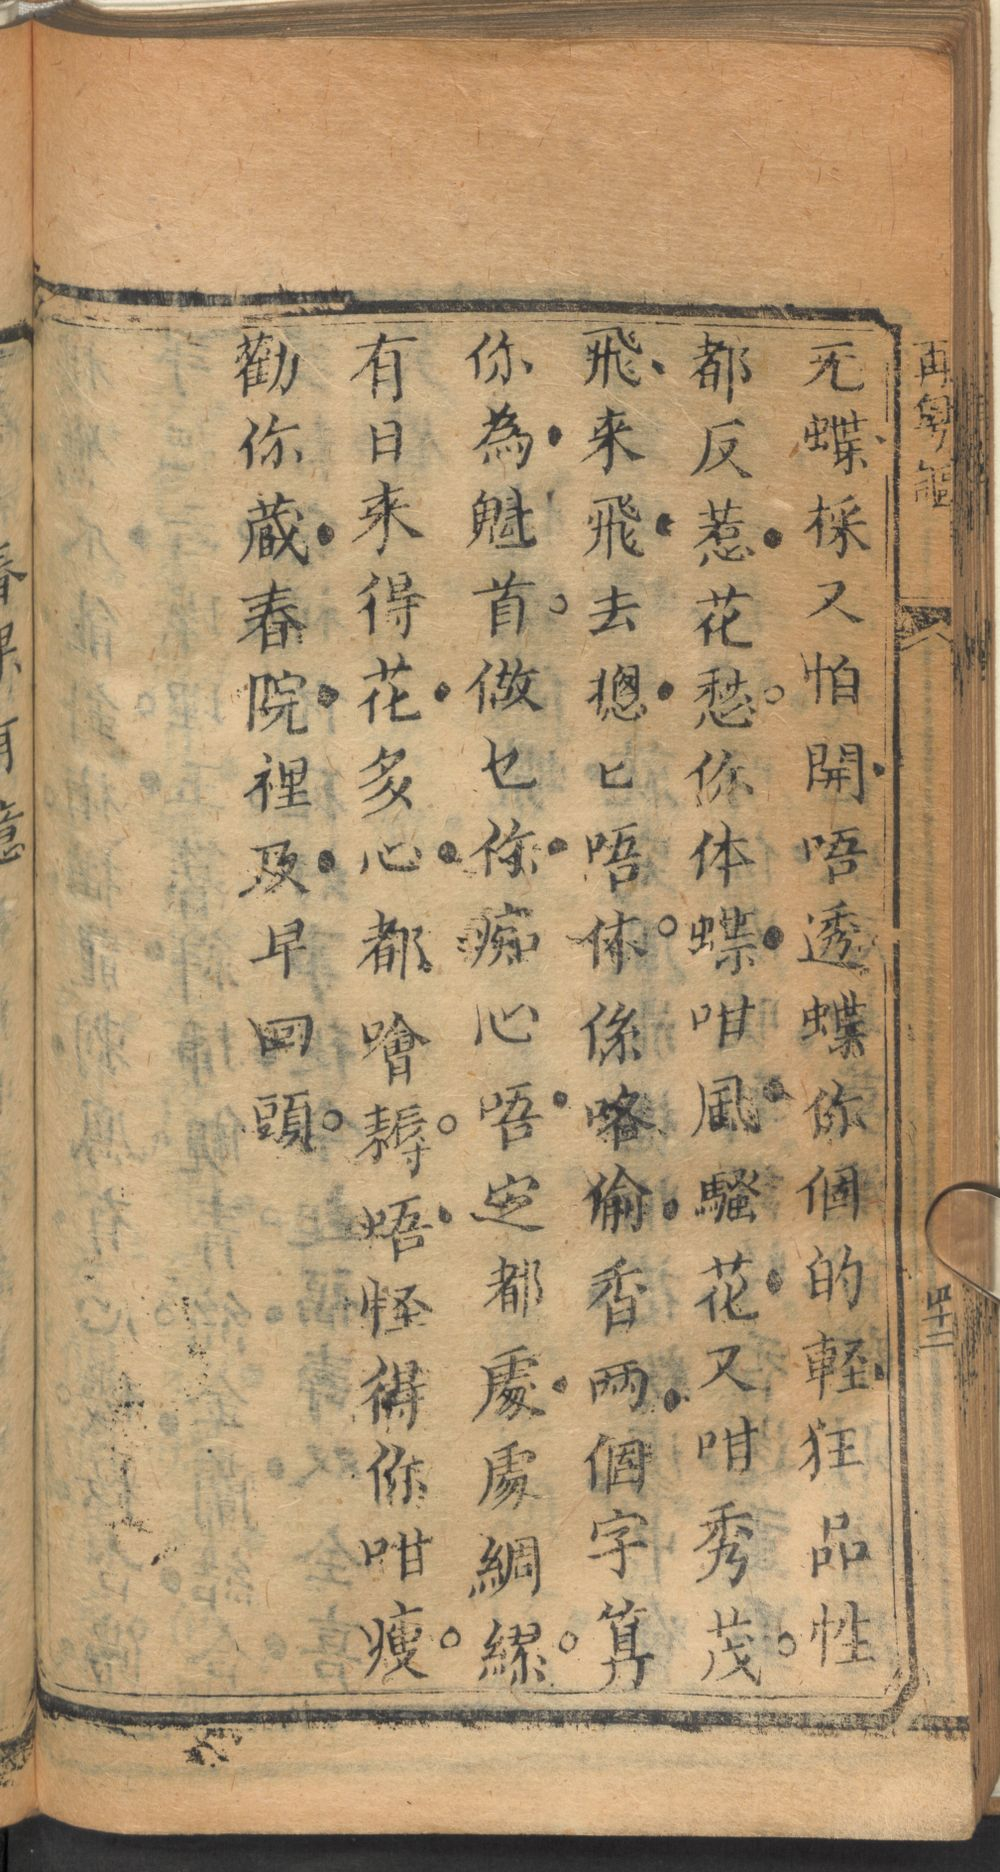 再粤謳
无蝶採又怕開唔透蝶你個的軽狂品性
都反惹花愁你体蝶咁風騷花又咁秀茂
飛来飛去摠匕唔休係咯偷香両個字算
你為魁首做乜你痴心唔定都處處綢繆
有日来得花多心都噲耨唔怪得你咁瘦
勸你蔵春院裡及早回頭
四十二